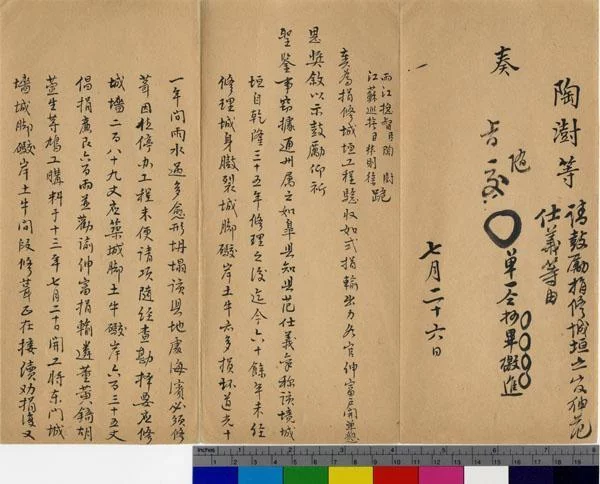 陶澍等
請鼓勵捐修城垣之官紳范
仕義等由
奏
旨
單一仝抄畢繳進
七月二十六日
兩江總督臣陶澍跪
江蘇巡撫臣林則徐
奏為捐修城垣工程驗收如式捐輸出力各官紳富戶籲懇
恩獎敘以示鼓勵仰祈
聖鑒事竊據通州属之如皋县知县范仕義稟称該境城
垣自乾隆三十五年修理之後迄今六十餘年未經
修理城身臌裂城脚礮岸土牛亦多損坏道光十
一年間雨水過多愈形坍塌該县地處海濱必須修
葺因于停办工程未便请項随经查勘擇要应修
城墻二百八十九丈应築城脚土牛礮岸六百三十五丈
倡捐廉艮六百兩並勸諭紳富捐輸遴董黃錡胡
萱生等鳩工購料于十三年七月二十日開工將东門城
墻城脚礮岸土牛間段修葺正在接續劝捐復又